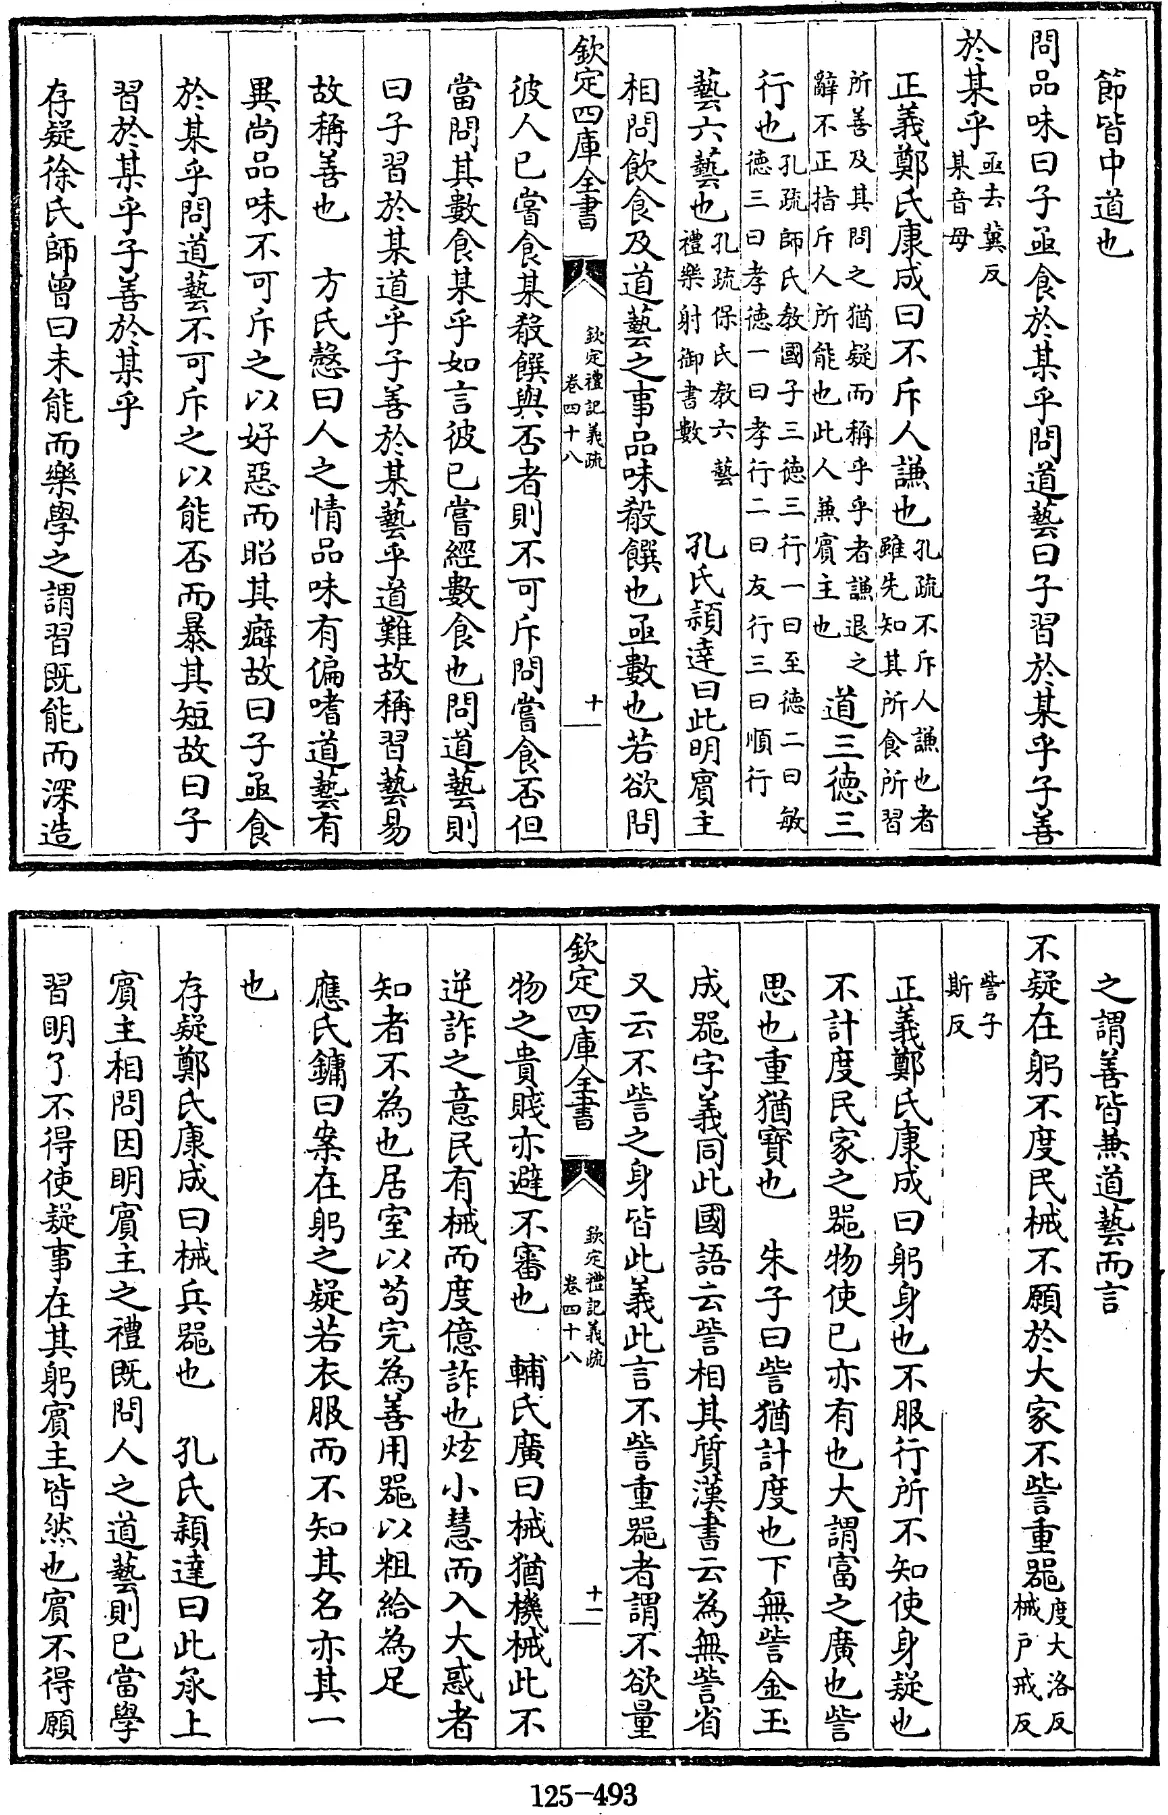 節皆中道也
問品味曰子亟食於某乎問道藝曰子習於某乎子善
於某乎亟去冀反某音母
正義鄭氏康成曰不斥人謙也孔疏不斥人謙也者雖先知其所食所習
所善及其問之猶疑而稱乎乎者謙退之辭不正指斥人所能也此人兼賓主也道三德三
行也孔疏師氏教國子三徳三行一曰至德二曰敏徳三曰孝徳一曰孝行二曰友行三曰順行
藝六藝也孔疏保氏教六藝禮樂射御書數 孔氏穎達曰此明賓主
相問飲食及道藝之事品味殽饌也亟數也若欲問
欽定四庫全書 欽定禮記義疏卷四十八 十
彼人已嘗食某殽饌與否者則不可斥問嘗食否但
當問其數食某乎如言彼已嘗經數食也問道藝則
曰子習於某道乎子善於某藝乎道難故稱習藝易
故稱善也 方氏慤曰人之情品味有偏嗜道藝有
異尚品味不可斥之以好惡而昭其癖故曰子亟食
於某乎問道藝不可斥之以能否而暴其短故曰子
習於某乎子善於某乎
存疑徐氏師曾曰未能而樂學之謂習既能而深造
之謂善皆兼道藝而言
不疑在躬不度民械不願於大家不訾重器度大洛反械戸戒反
訾子斯反
正義鄭氏康成曰躬身也不服行所不知使身疑也
不計度民家之器物使已亦有也大謂富之廣也訾
思也重猶寳也 朱子曰訾猶計度也下無訾金玉
成器字義同此國語云訾相其質漢書云為無訾省
又云不訾之身皆此義此言不訾重器者謂不欲量
欽定四庫全書 欽定禮記義疏卷四十八 十一
物之貴賤亦避不審也 輔氏廣曰械猶機械此不
逆詐之意民有械而度億詐也炫小慧而入大惑者
知者不為也居室以苟完為善用器以粗給為足
應氏鏞曰案在躬之疑若衣服而不知其名亦其一
也
存疑鄭氏康成曰械兵器也 孔氏穎達曰此承上
賓主相問因明賓主之禮既問人之道藝則已當學
習明了不得使疑事在其躬賓主皆然也賓不得願
125-493